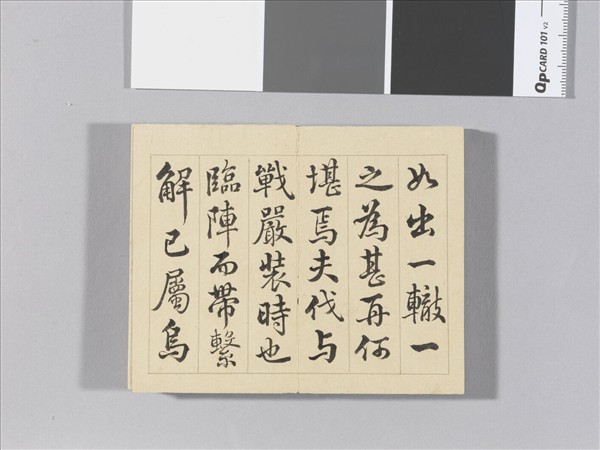 如出一轍一
之為甚再何
堪焉夫伐与
戰嚴裝時也
臨陣而帶繫
解已屬烏
QpCARD 101 v2